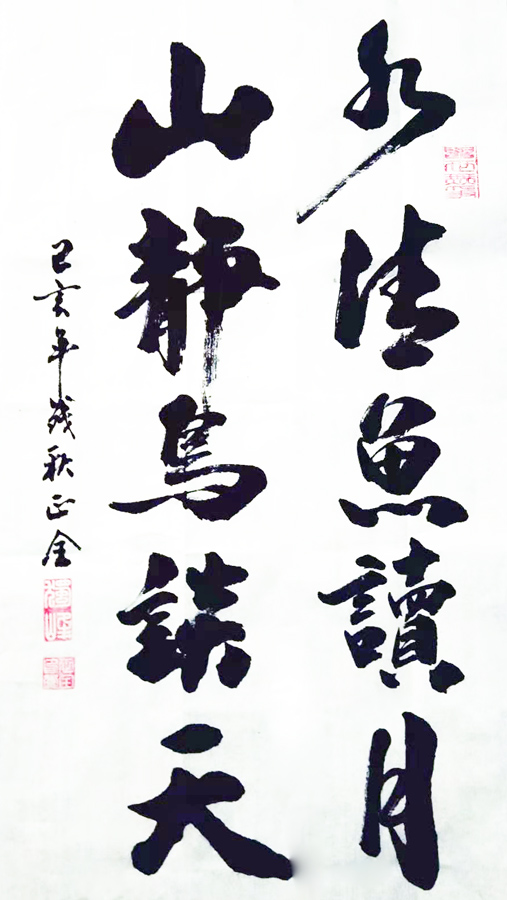 水清魚讀月
山靜鳥談天
己亥年残秋正金